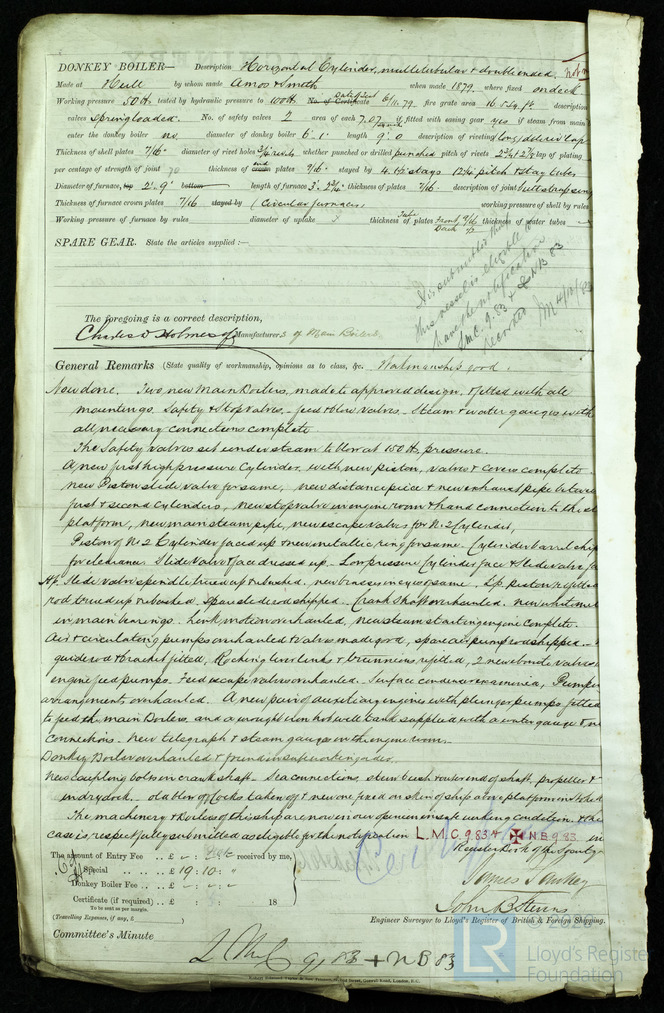 DONKEY BOILER— Description Horizontal Cylinder, multitubular & double ended.
Made at Hull by whom made Amos & Smith when made 1879 where fixed on deck
Working pressure 50 lb tested by hydraulic pressure to 100 lb No. of Certificate 6/11.79 fire grate area 16.5 sq ft description
valves Spring loaded. No. of safety valves 2 area of each 7.07 if fitted with easing gear yes if steam from main
enter the donkey boiler no diameter of donkey boiler 6' 1" length 9' 0 description of riveting long/d riv lap
Thickness of shell plates 7/16 diameter of rivet holes 3/4 rivets whether punched or drilled punched pitch of rivets 2 3/4 lap of plating
per centage of strength of joint 70 thickness of end plates 7/16 stayed by 4. 1 1/2 stays 12 1/4 pitch & stay tubes
Diameter of furnace, top 2' 9" bottom length of furnace 3' thickness of plates 7/16 description of joint butt strap
Thickness of furnace crown plates 7/16 stayed by (circular furnaces) working pressure of shell by rules
Working pressure of furnace by rules diameter of uptake thickness of Tube plates Front Back thickness of water tubes
SPARE GEAR. State the articles supplied :—
It is submitted that
this vessel is eligible to
have the notification
LMC. 9.83 & NB 83
recorded
The foregoing is a correct description,
Charles D Holmes & Co Manufacturers of Main Boilers
General Remarks (State quality of workmanship, opinions as to class, &c. Workmanship good.
Now done. Two new Main Boilers, made to approved design, & fitted with all
mountings. Safety & Stop Valves, - feed & blow valves - Steam & water gauges with
all necessary connections complete
The Safety valves set under steam to blow at 150 lb pressure.
A new first high pressure Cylinder, with new piston, valves & covers complete.
new Piston slide valve for same, new distance piece & new exhaust pipe between
first & second Cylinders, new stop valve in engine room & hand connection to the
platform, new main steam pipe, new escape valves for No 2 Cylinder,
Piston of No 2 Cylinder faced up & new metallic ring for same. Cylinder barrel
for clearance. Slide Valve & face dressed up. Low pressure Cylinder face & slide valve
H.P. Slide valve spindle trued up & rebushed, new brasses in eye of same. L.p. piston refitted
rod trued up & rebushed, spare slide rod shipped. Crank Shaft overhauled. new white metal
in main bearings. Link motion overhauled, new steam starting engine complete.
Air & circulating pumps overhauled & valves made good, spare air pump rod shipped
guide rod & bracket fitted, Rocking lever links & trunnions refitted, 2 new bronze valves
engine feed pumps. Feed escape valves overhauled. Surface condenser examined, Pumps
arrangements overhauled. A new pair of auxiliary engines with plunger pumps fitted
to feed the main Boilers, and a wrought iron hotwell tank supplied with a water gauge &
connections. New telegraph & steam gauges in the engine room.
Donkey Boiler overhauled & found in good working order.
New coupling bolts in crank shaft. Sea connections, stern bush & outer end of shaft, propeller &
in dry dock. old blow off cocks taken off & new one fixed on skin of ship above platform
The machinery & Boilers of this ship are now in our opinion in safe working condition. & the
case is respectfully submitted as eligible for the notification L.M.C. 9.83 & ✠ N B 9.83 in
Register Book of the Society
The amount of Entry Fee .. £ - : - : - received by me,
Special .. £ 19 : 10 : "
Donkey Boiler Fee .. £ - : - : -
Certificate (if required) .. £ 18
To be sent as per margin.
(Travelling Expenses, if any, £ )
John B Stevens
Engineer Surveyor to Lloyd's Register of British & Foreign Shipping.
Committee's Minute
LMC 9/83 + NB 83
LR
Lloyd's Register
Foundation